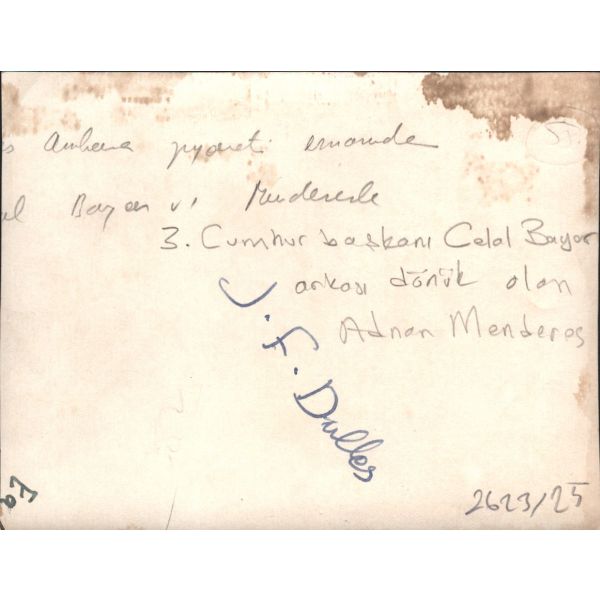 s Ankara ziyareti esnasında
al Bayar ve Menderesle
3. Cumhurbaşkanı Celal Bayar
arkası dönük olan
Adnan Menderes
J. F. Dulles
2623/25